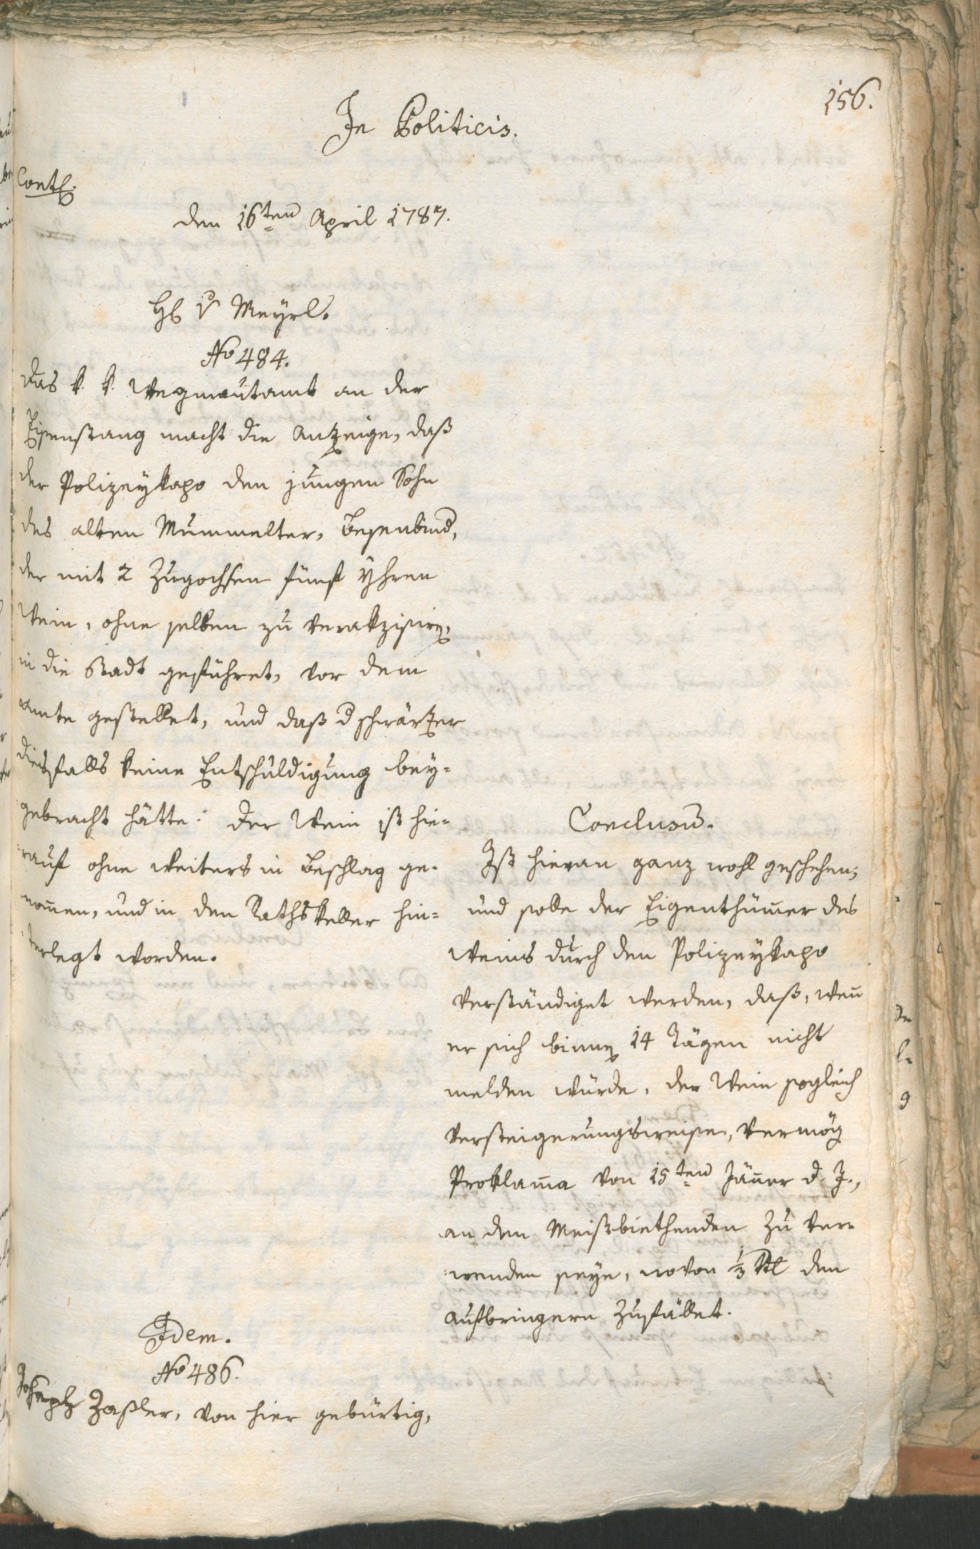 156.
In Politicis.
Contb.
den 16ten April 1787.
H v Meyrl.
No 484.
Das k. k. Wegmautamt an der
Eisenstang macht die Anzeige, daß
der Polizeykapo den jungen Sohn
des alten Mummelter, Besenbind,
der mit 2 Zugochsen fünf Yhren
Wein, ohne selben zu verakzisiren,
in die Stadt geführet, vor dem
Amte gestellet, und daß d Schwärzer
diesfalls keine Entschuldigung bey-
gebracht hätte: der Wein ist hie-
rauf ohne weiters in Beschlag ge-
nomen, und in den Rathskeller hin-
terlegt worden.
Conclusu.
Ist hieran ganz wohl geschehen,
und solle der Eigenthümer des
Weins durch den Polizeykapo
verständiget werden, daß, wen
er sich binnen 14 Tägen nicht
melden würde, der Wein sogleich
versteigerungsweise, vermög
Proklama von 15ten Jäner d. J.,
an den Meistbiethenden zu ver-
wenden seye, wovon 1/3 den
Aufbringern zufället.
Idem.
No 486.
Joseph Zaßler, von hier gebürtig,